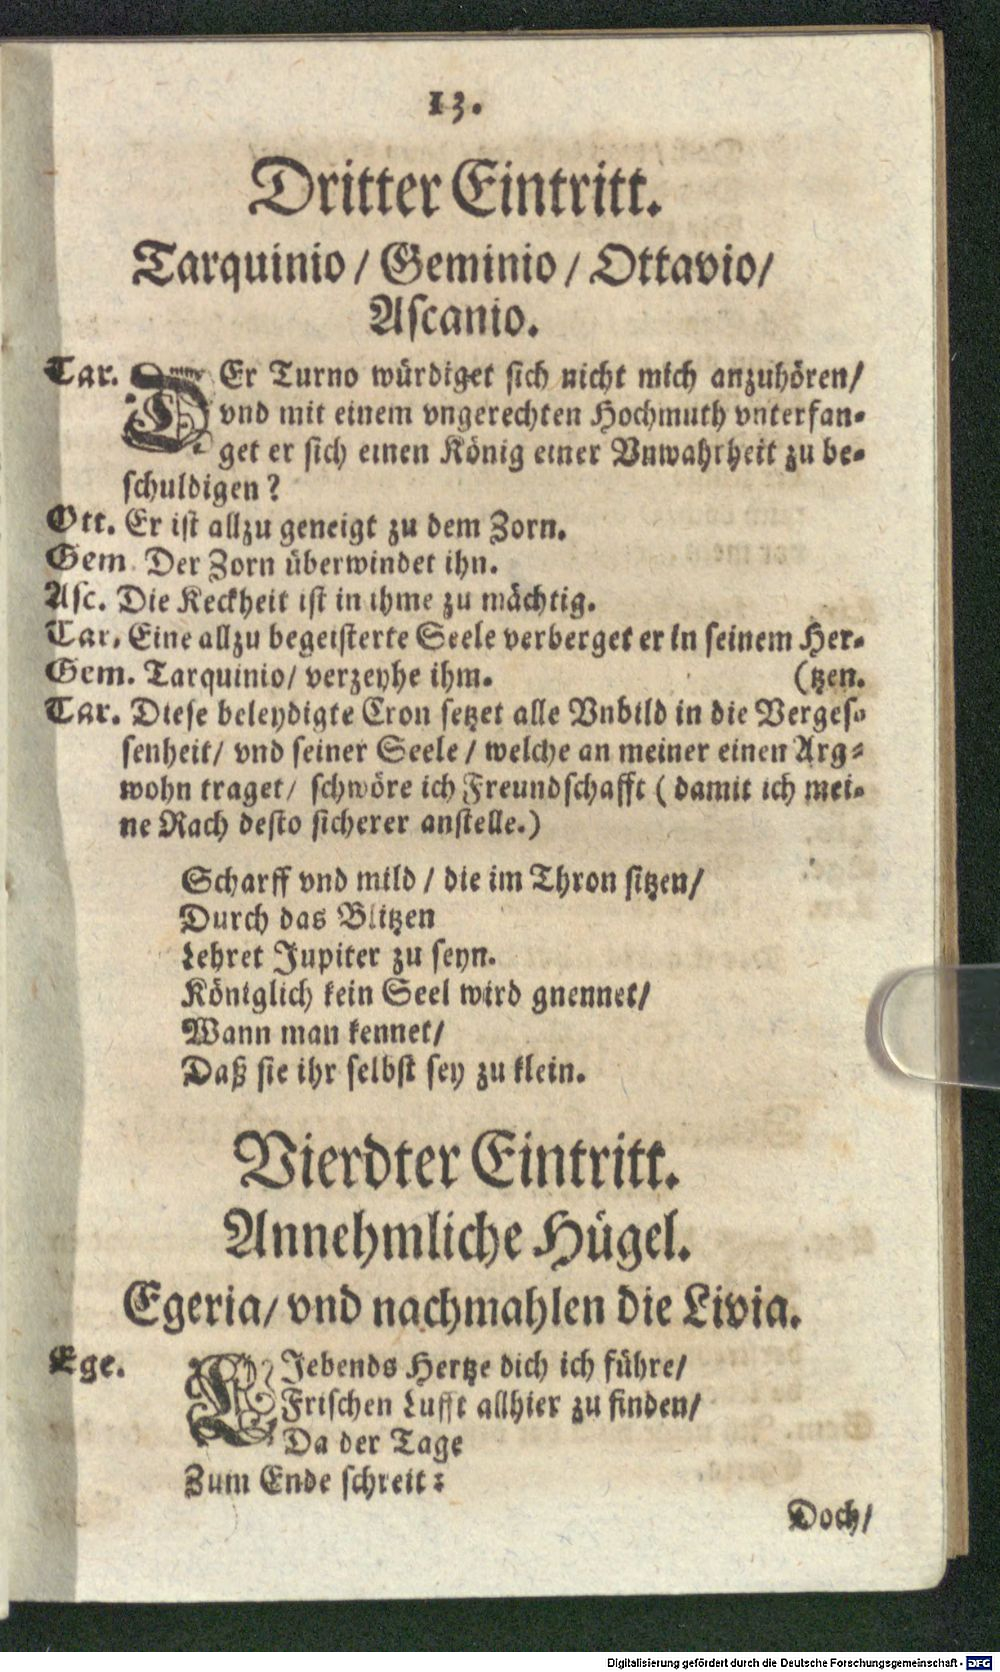 13.
Dritter Eintritt.
Tarquinio / Geminio / Ottavio /
Ascanio.
Tar. DEr Turno würdiget sich nicht mich anzuhören /
vnd mit einem vngerechten Hochmuth vnterfan-
get er sich einen König einer Vnwahrheit zu be-
schuldigen ?
Ott. Er ist allzu geneigt zu dem Zorn.
Gem. Der Zorn überwindet ihn.
Asc. Die Keckheit ist in ihme zu mächtig.
Tar. Eine allzu begeisterte Seele verberget er in seinem Her-
Gem. Tarquinio / verzeyhe ihm. (tzen.
Tar. Diese beleydigte Cron setzet alle Vnbild in die Verges-
senheit / vnd seiner Seele / welche an meiner einen Arg-
wohn traget / schwöre ich Freundschafft ( damit ich mei-
ne Rach desto sicherer anstelle.)
Scharff vnd mild / die im Thron sitzen /
Durch das Blitzen
Lehret Jupiter zu seyn.
Königlich kein Seel wird gnennet /
Wann man kennet /
Daß sie ihr selbst sey zu klein.
Vierdter Eintritt.
Annehmliche Hügel.
Egeria / vnd nachmahlen die Livia.
Ege. LIebends Hertze dich ich führe /
Frischen Lufft allhier zu finden /
Da der Tage
Zum Ende schreit :
Doch /
Digitalisierung gefördert durch die Deutsche Forschungsgemeinschaft - DFG